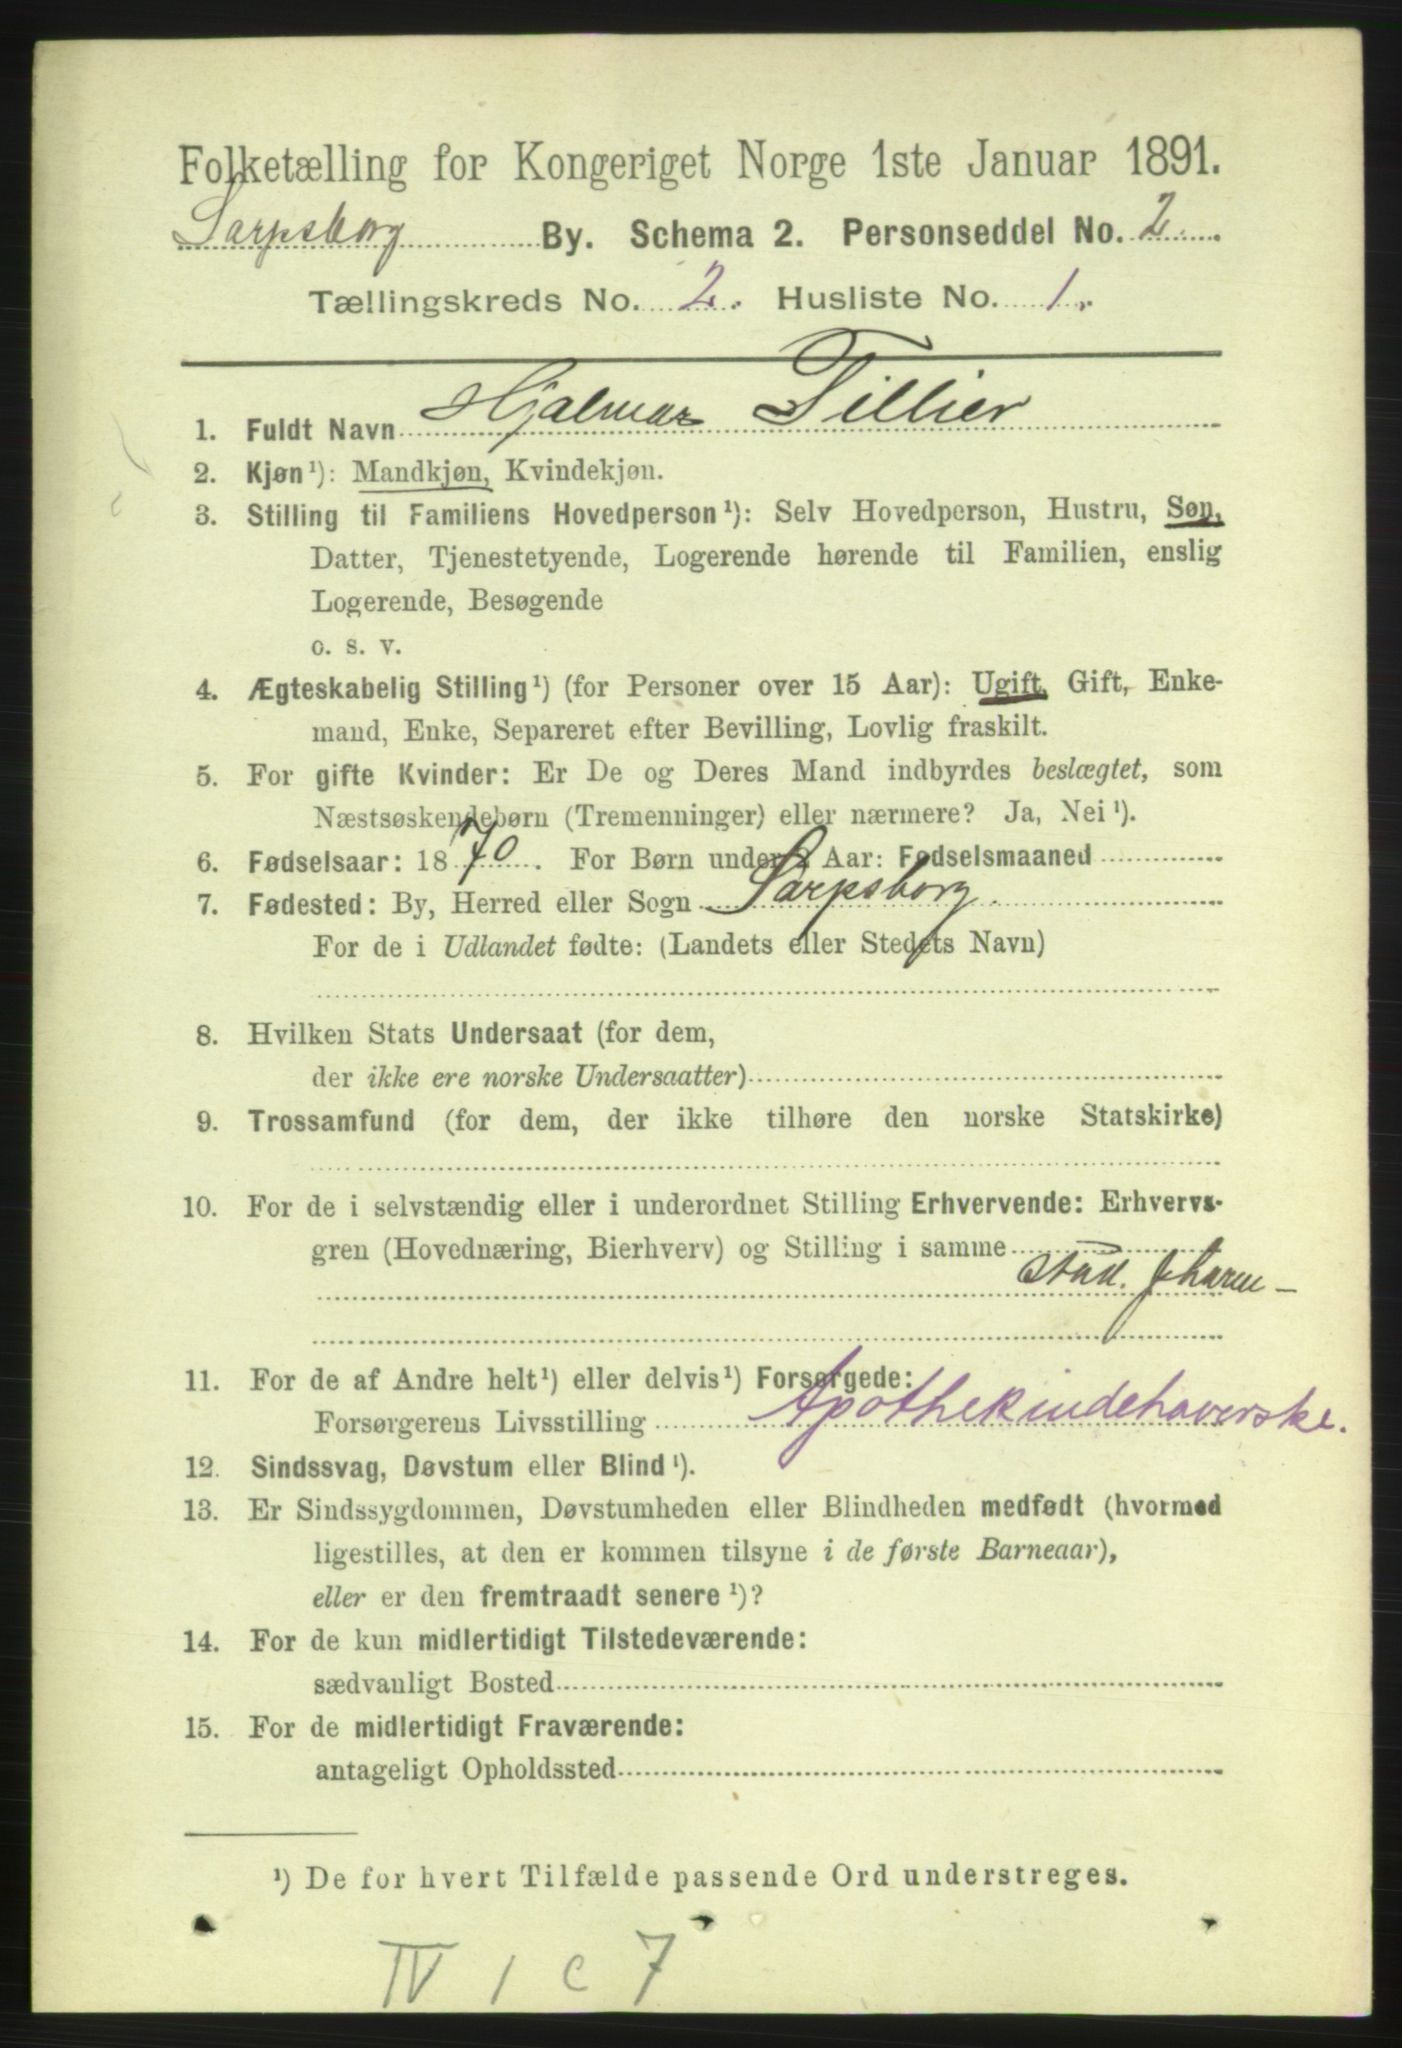 Folketælling for Kongeriget Norge 1ste Januar 1891.
Sarpsborg By. Schema 2. Personseddel No. 2.
Tællingskreds No. 2. Husliste No. 1.
1. Fuldt Navn Hjalmar Tillier
2. Kjøn¹): Mandkjøn, Kvindekjøn.
3. Stilling til Familiens Hovedperson¹): Selv Hovedperson, Hustru, Søn,
Datter, Tjenestetyende, Logerende hørende til Familien, enslig
Logerende, Besøgende
o. s. v.
4. Ægteskabelig Stilling¹) (for Personer over 15 Aar): Ugift, Gift, Enke-
mand, Enke, Separeret efter Bevilling, Lovlig fraskilt.
5. For gifte Kvinder: Er De og Deres Mand indbyrdes beslægtet, som
Næstsøskendebørn (Tremenninger) eller nærmere? Ja, Nei¹).
6. Fødselsaar: 1870. For Børn under 2 Aar: Fødselsmaaned
7. Fødested: By, Herred eller Sogn Sarpsborg.
For de i Udlandet fødte: (Landets eller Stedets Navn)
8. Hvilken Stats Undersaat (for dem,
der ikke ere norske Undersaatter)
9. Trossamfund (for dem, der ikke tilhøre den norske Statskirke)
10. For de i selvstændig eller i underordnet Stilling Erhvervende: Erhvervs-
gren (Hovednæring, Bierhverv) og Stilling i samme
stud. pharm –
11. For de af Andre helt¹) eller delvis¹) Forsørgede:
Forsørgerens Livsstilling Apothekindehaverske.
12. Sindssvag, Døvstum eller Blind¹).
13. Er Sindssygdommen, Døvstumheden eller Blindheden medfødt (hvormed
ligestilles, at den er kommen tilsyne i de første Barneaar),
eller er den fremtraadt senere¹)?
14. For de kun midlertidigt Tilstedeværende:
sædvanligt Bosted
15. For de midlertidigt Fraværende:
antageligt Opholdssted
¹) De for hvert Tilfælde passende Ord understreges.
IV 1 c 7